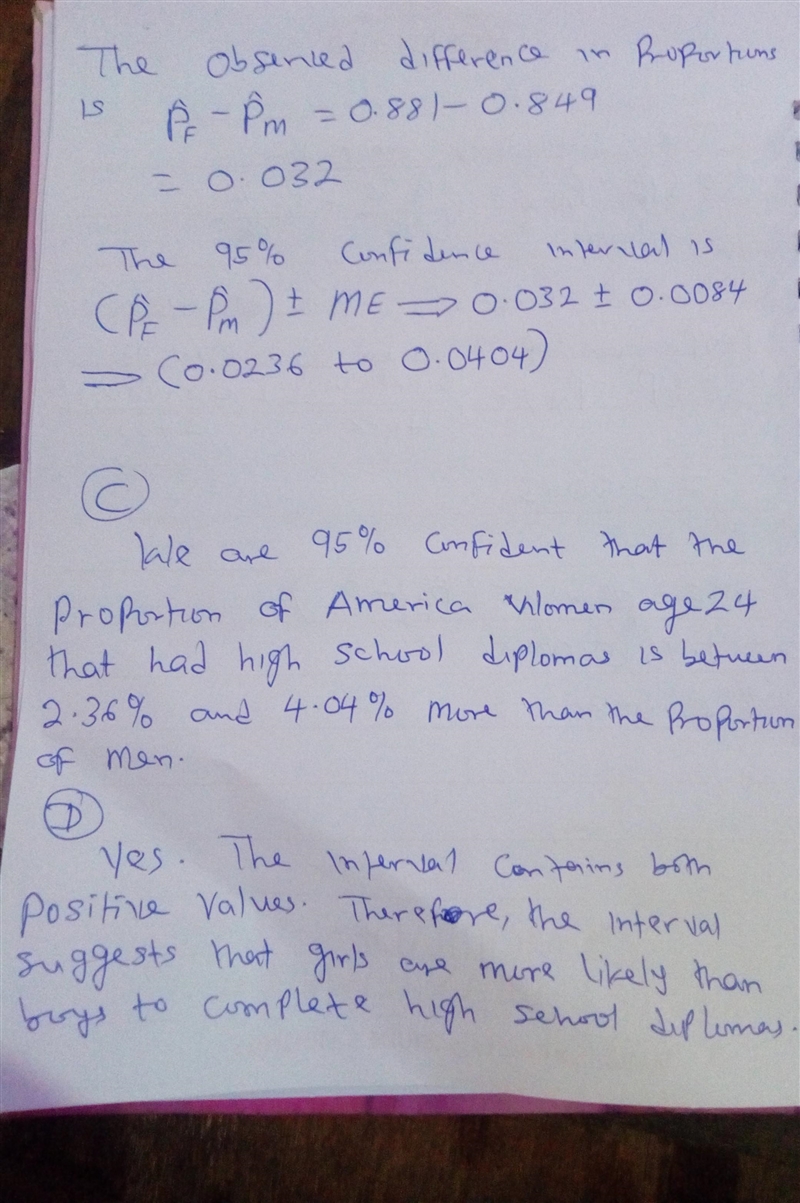 The Observed difference in Proportions
is P̂F - P̂m = 0.881 - 0.849
= 0.032
The 95% Confidence interval is
(P̂F - P̂m) ± ME ⟹ 0.032 ± 0.0084
⟹ (0.0236 to 0.0404)
C
We are 95% Confident that the
Proportion of America Women age 24
that had high school diplomas is between
2.36% and 4.04% more than the Proportion
of men.
D
Yes. The Interval Contains both
Positive Values. Therefore, the Interval
suggests that girls are more likely than
boys to complete high school diplomas.